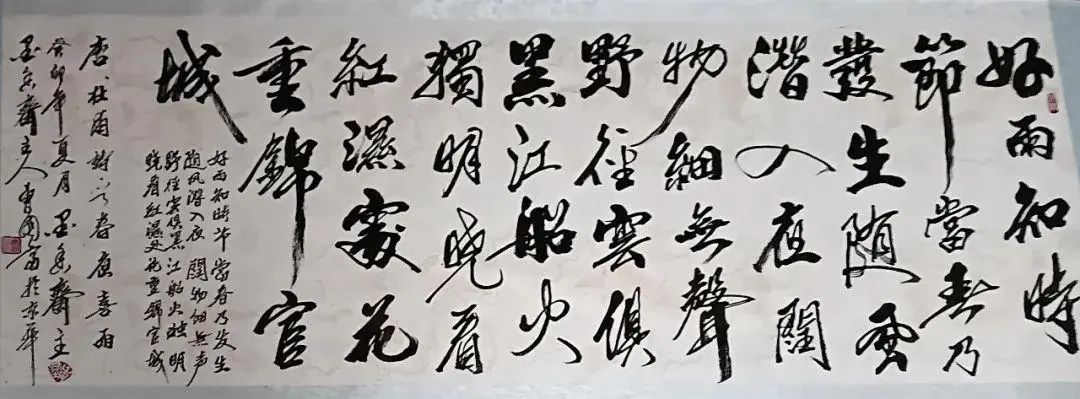 好雨知時
節當春乃
發生随風
潛入夜潤
物細無聲
野徑雲俱
黑江船火
獨明曉看
紅濕處花
重錦官
城
好雨知時节 當春乃发生
随风潜入夜 润物细無声
野径雲俱黑 江船火独明
晓看红濕处 花重錦官城
唐杜甫詩春夜喜雨
癸卯年夏月墨香齋主
墨香齋主人曹國富於京華